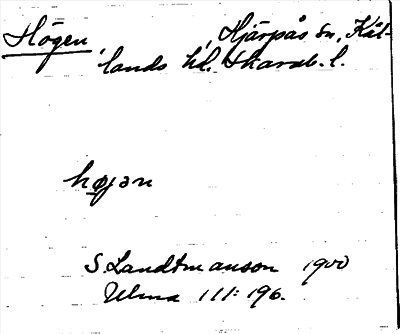 Högen, Hjärpås sn, Kål-
lands hd. Skarab. l.
højən
S Landtmanson 1900
Ulma 111:196.